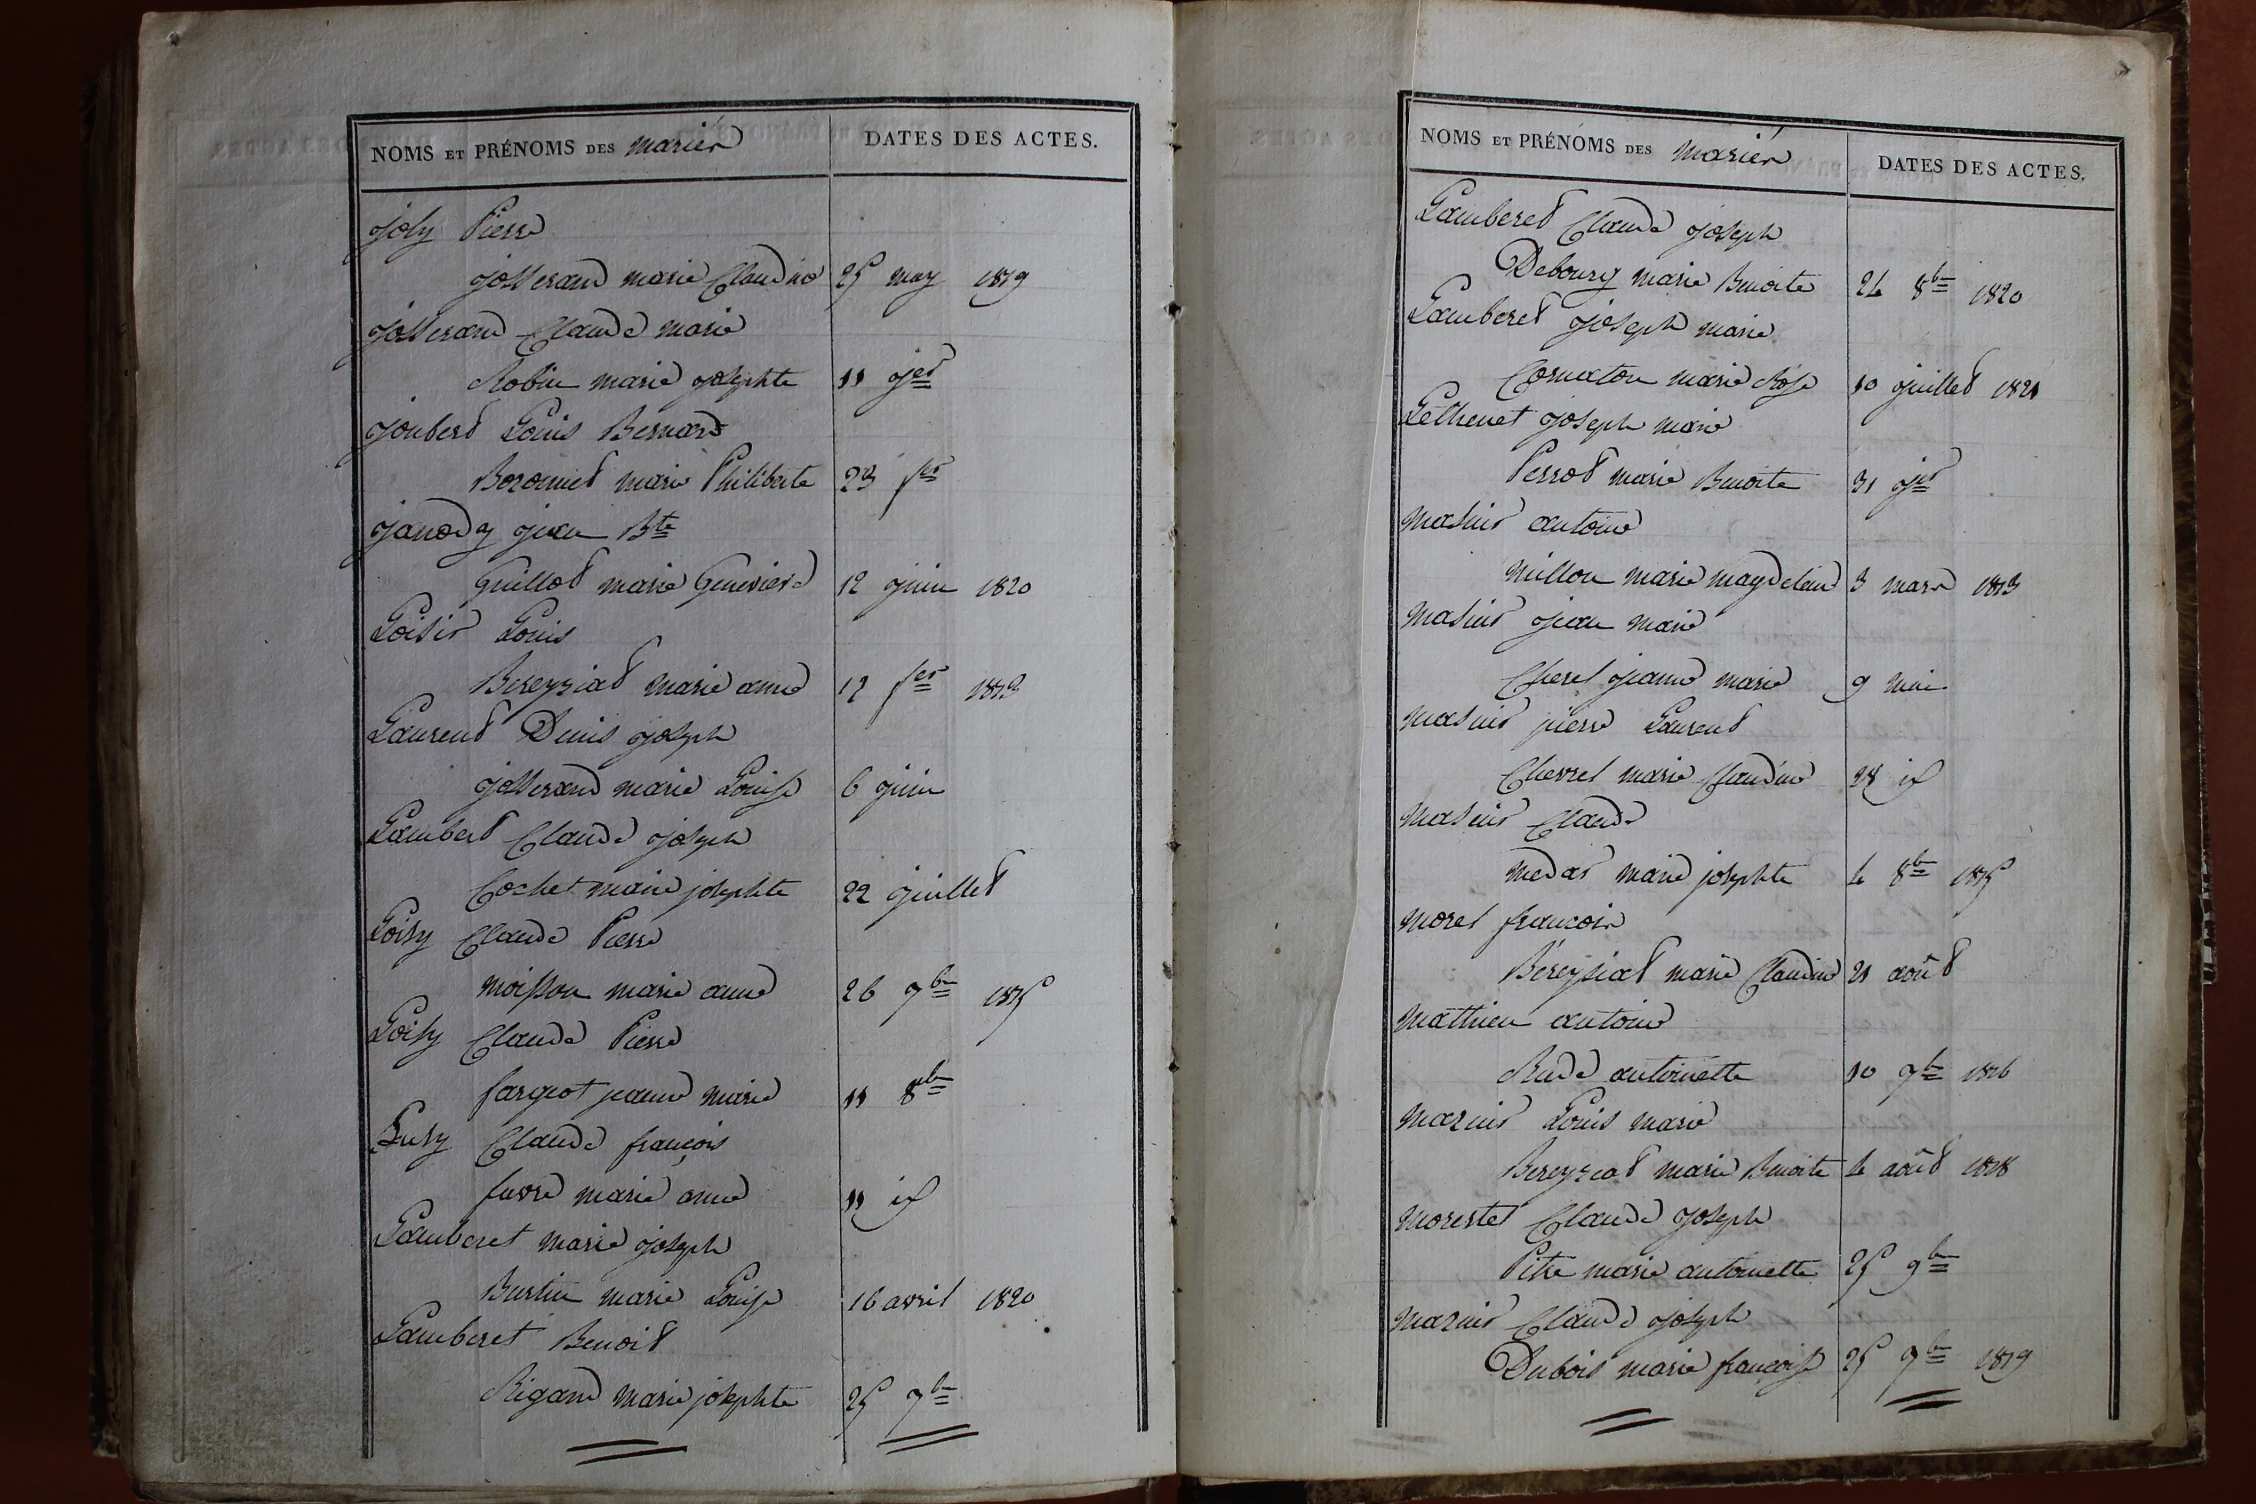 NOMS ET PRÉNOMS DES mariés DATES DES ACTES.
Joly Pierre
Josserand marie Claudine 25 may 1819
Josserand Claude marie
Robin marie josephte 11 jer
Joubert Louis Bernard
marie Philiberte 23 fer
Janody jean Bte
Guillot marie Genevieve 12 juin 1820
Loisir Louis
Bereyziat marie anne 12 fer 1813
Laurent Denis joseph
Josserand marie Louise 6 juin
Lambert Claude joseph
Cochet marie josephte 22 juillet
Loisy Claude Pierre
moisson marie anne 26 7bre 1815
Loisy Claude Pierre
fargeot jeanne marie 11 8bre
Lusy Claude françois
favre marie anne 11 id
Lamberet marie joseph
Burtin marie Louise 16 avril 1820
Lamberet Benoit
Rigaud marie josephte 25 7bre
NOMS ET PRÉNOMS DES mariés DATES DES ACTES.
Lamberet Claude joseph
Debourg marie Benoite 24 8bre 1820
Lamberet joseph marie
Cornaton marie Rose 10 juillet 1821
Lethenet joseph marie
Perrot marie Benoite 31 jer
Masuir antoine
Millon marie magdelaine 3 mars 1813
Masuir jean marie
Cherel jeanne marie 9 mai
Masuir pierre Laurent
Chevrel marie Claudine 28 id
Masuir Claude
medas marie josephte 4 8bre 1815
Morel francois
Béreyziat marie Claudine 21 août
Mathieu antoine
Rude antoinette 10 7bre 1816
Mazuir Louis marie
Bereyziat marie Benoite 4 août 1818
Morestel Claude joseph
Pitre marie antoinette 25 9bre
Mazuir Claude joseph
Dubois marie françoise 25 9bre 1819